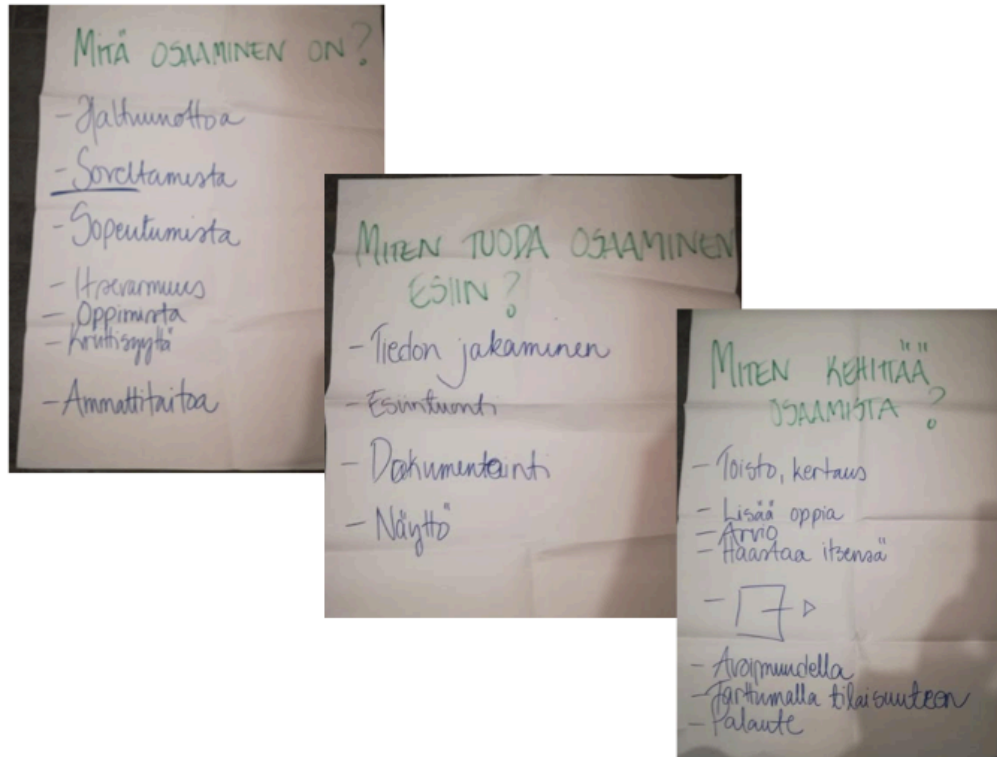 MITÄ OSAAMINEN ON?
- Haltuunottoa
- Soveltamista
- Sopeutumista
- Itsevarmuus
- Oppimista
- Kriittisyyttä
- Ammattitaitoa
MITEN TUODA OSAAMINEN
ESIIN?
- Tiedon jakaminen
- Esiintuonti
- Dokumentointi
- Näyttö
MITEN KEHITTÄÄ
OSAAMISTA?
- Toisto, kertaus
- Lisää oppia
- Arvio
- Haastaa itsensä
- Avoimuudella
- Tarttumalla tilaisuuteen
- Palaute